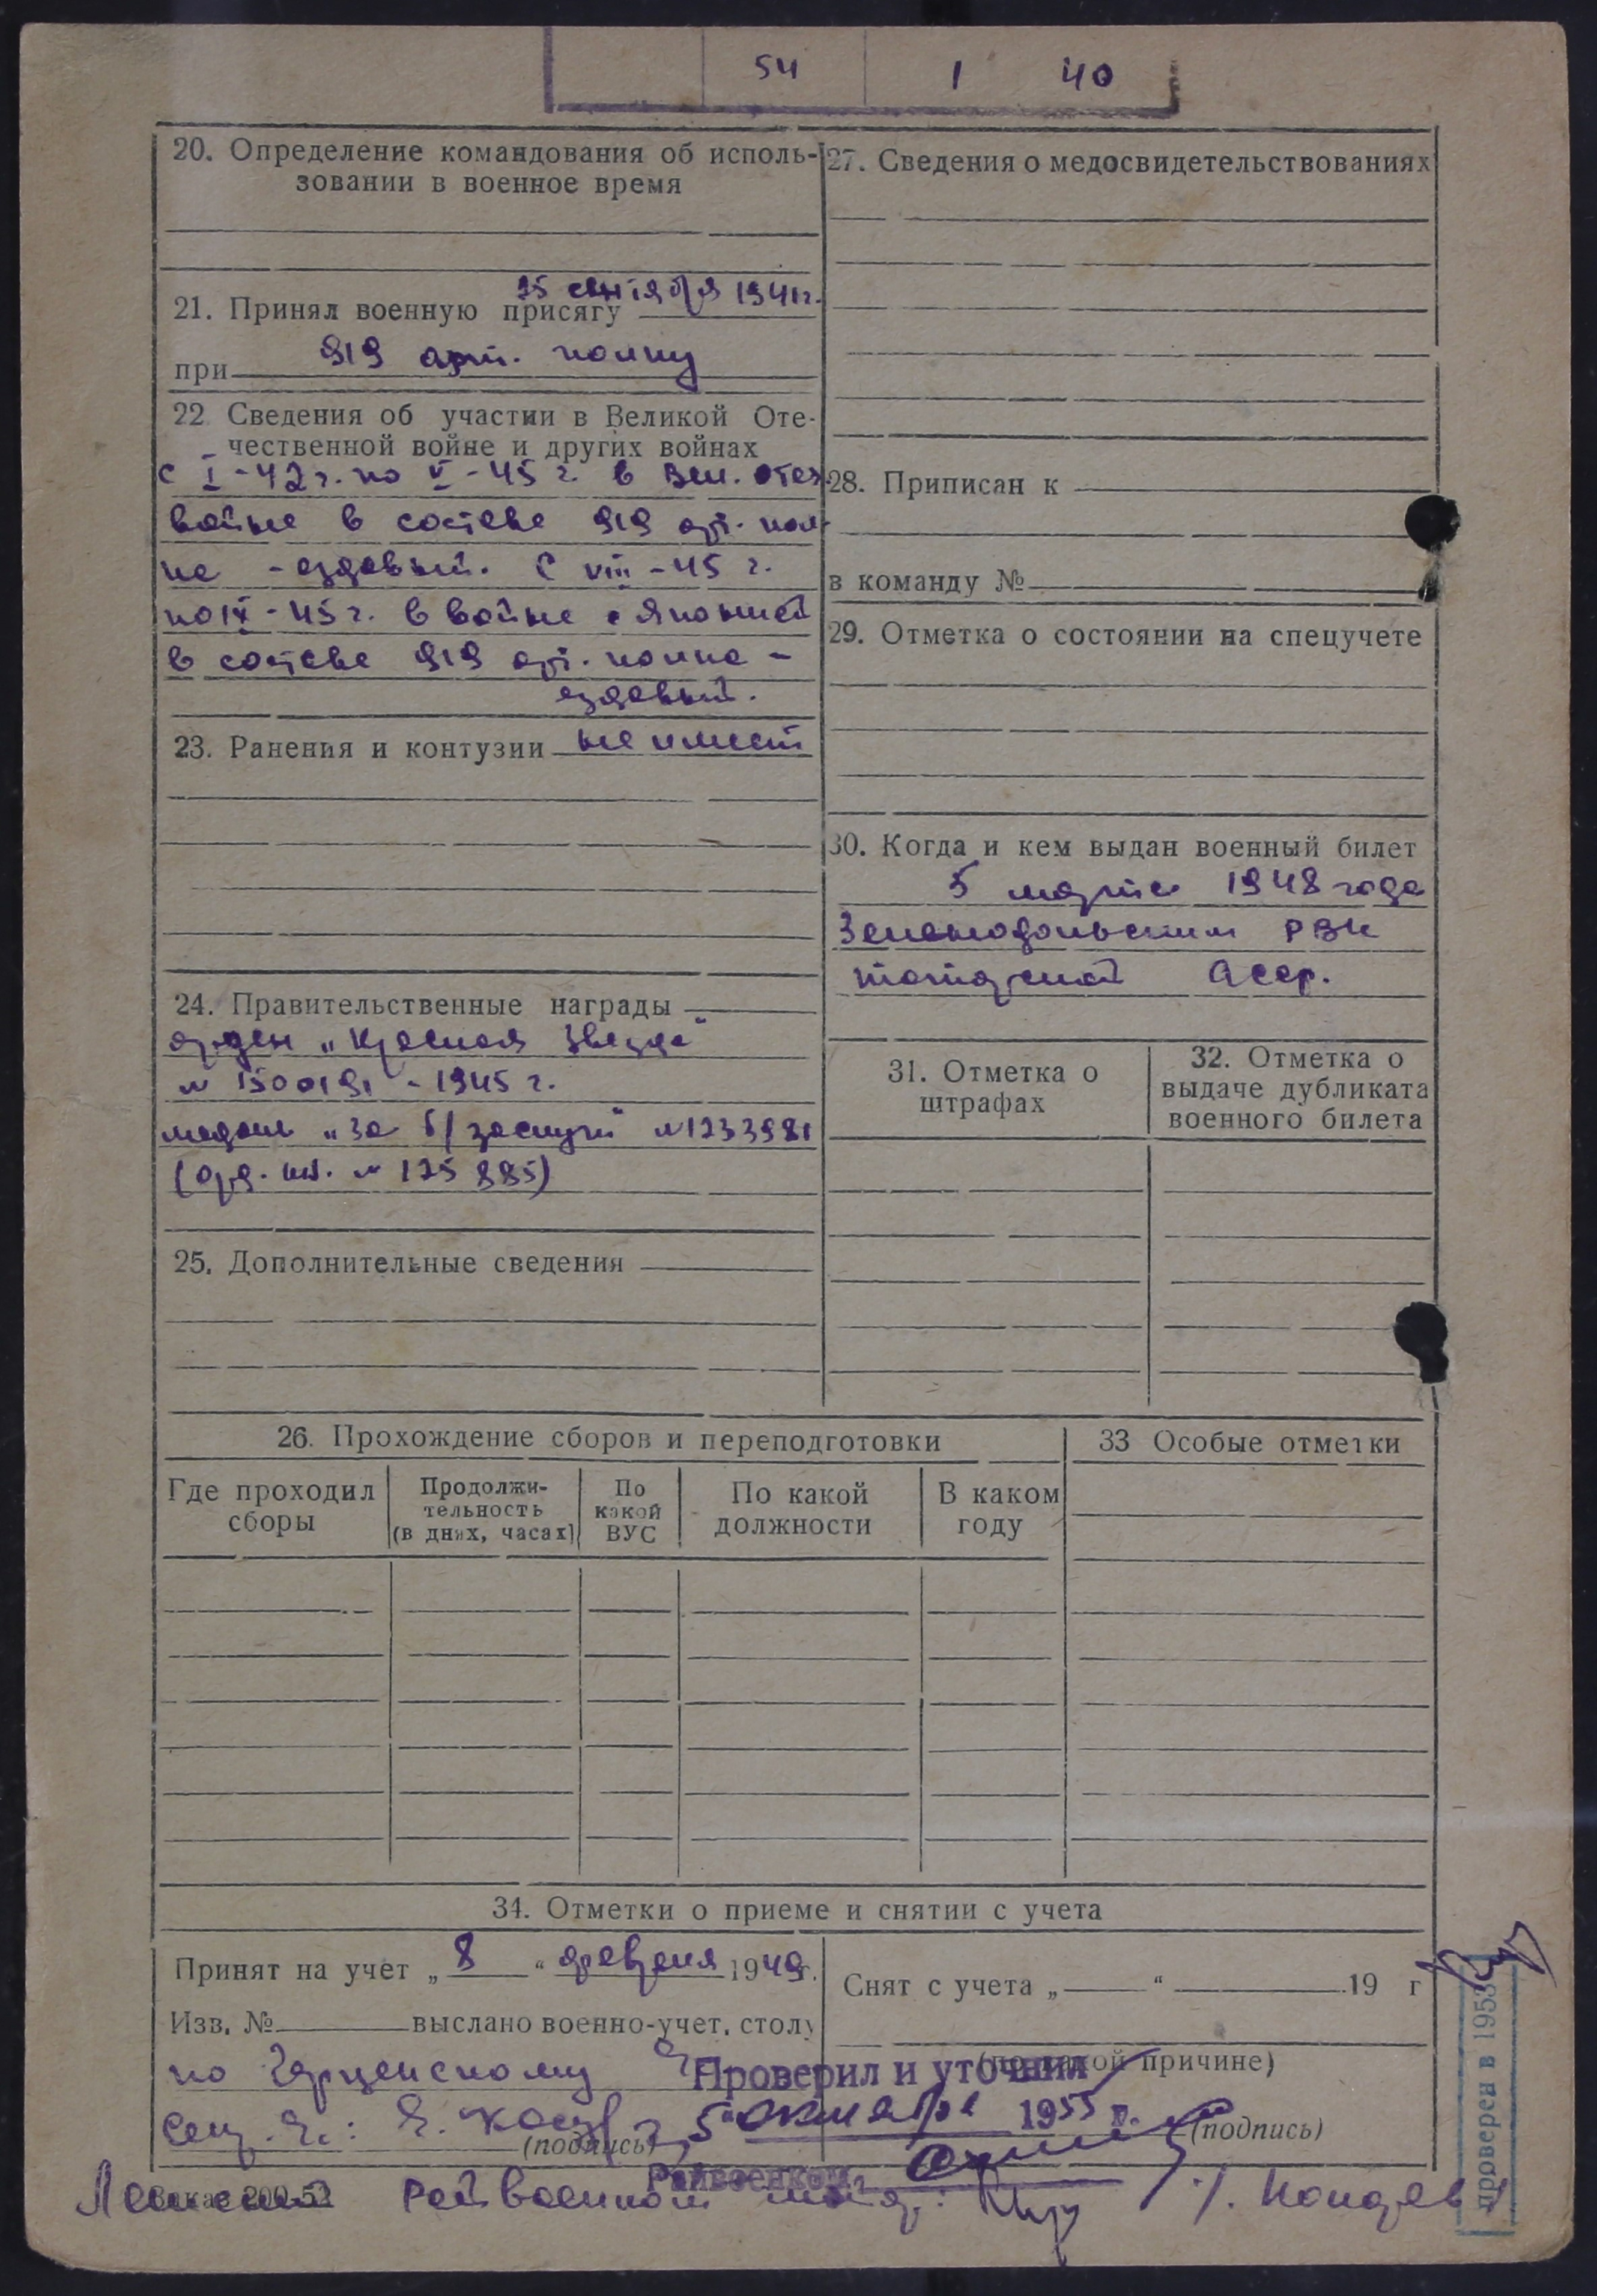 54 1 40
20. Определение командования об исполь-
зовании в военное время
21. Принял военную присягу 15 сентября 1941г.
при 919 арт. полку
22 Сведения об участии в Великой Оте-
чественной войне и других войнах
с I-42г. по V-45 г. в Вел. Отеч.
войне в составе 919 арт. пол-
ка - ездовый. С VIII-45 г.
по IX-45г. в войне с Японией
в составе 919 арт. полка -
ездовый.
23. Ранения и контузии не имеет
24. Правительственные награды
орден „Красная Звезда"
№ 1500191 - 1945 г.
медаль „За б/заслуги" №1233981
(орд. кн. № 175885)
25. Дополнительные сведения
27. Сведения о медосвидетельствованиях
28. Приписан к
в команду №
29. Отметка о состоянии на спецучете
30. Когда и кем выдан военный билет
5 марта 1948 года
Зеленодольским РВК
Татарской Асср.
31. Отметка о
штрафах
32. Отметка о
выдаче дубликата
военного билета
26. Прохождение сборов и переподготовки
Где проходил
сборы
Продолжи-
тельность
(в днях, часах)
По
какой
ВУС
По какой
должности
В каком
году
33 Особые отметки
34. Отметки о приеме и снятии с учета
Принят на учет „ 8 " февраля 1949г.
Изв. № выслано военно-учет. столу
по
(подпись)
Снят с учета „ " 19 г
(по какой причине)
(подпись)
Проверил и уточнил
5 октября 1955 г.
Райвоенком
Заказ 200-52
Райвоенком
проверен в 1953